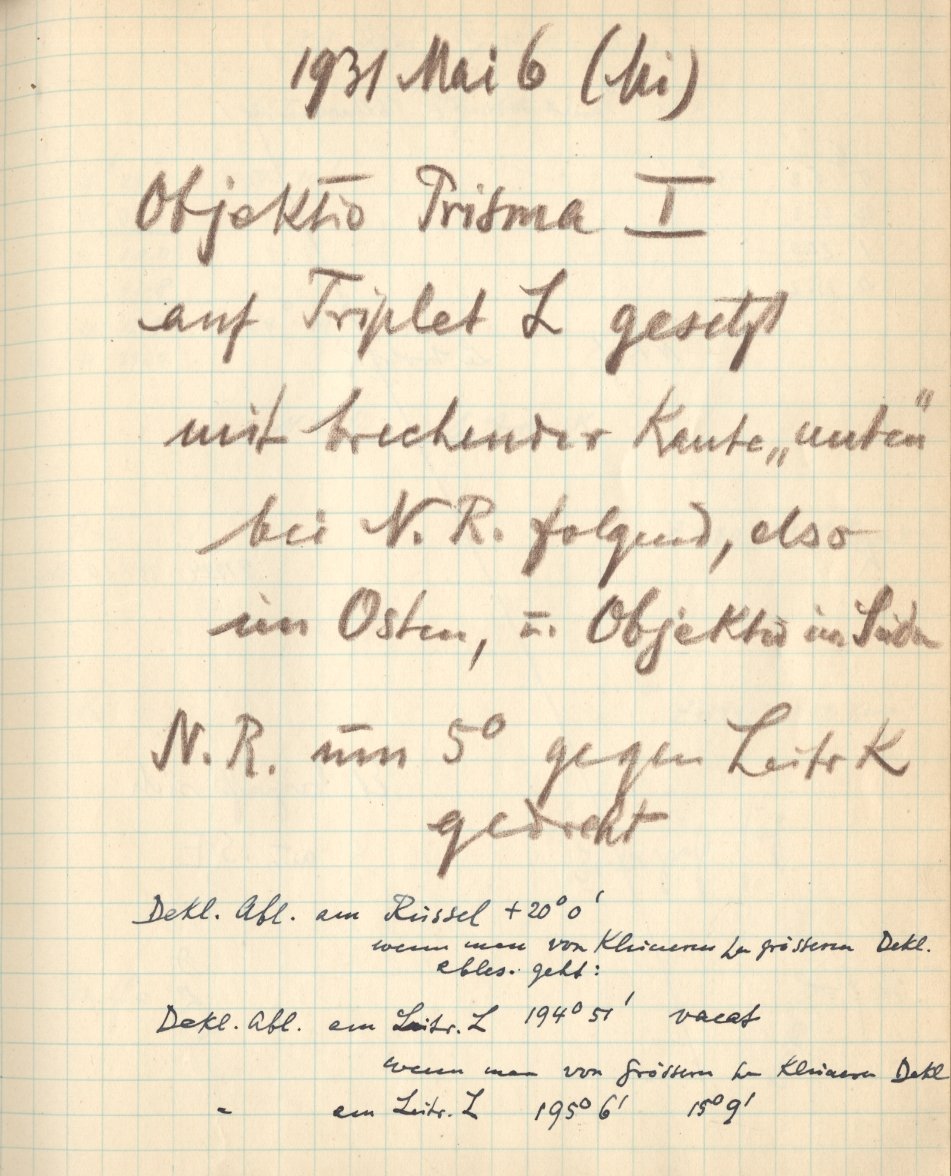 1931 Mai 6 (Mi)
Objektiv Prisma I
auf Triplet L gesetzt
mit brechender Kante „unten“
bei N. R. folgend, also
im Osten, u. Objektiv im Süden
N. R. um 5° gegen Leitr K
gedreht
Dekl. Abl. am Rüssel +20° 0'
wenn man von kleineren zu grösseren Dekl.
ables. geht:
Dekl. Abl. am Leitr. L 194° 51' vacat
wenn man von grössern zu kleineren Dekl
" am Leitr. L 195° 6' 15° 9'